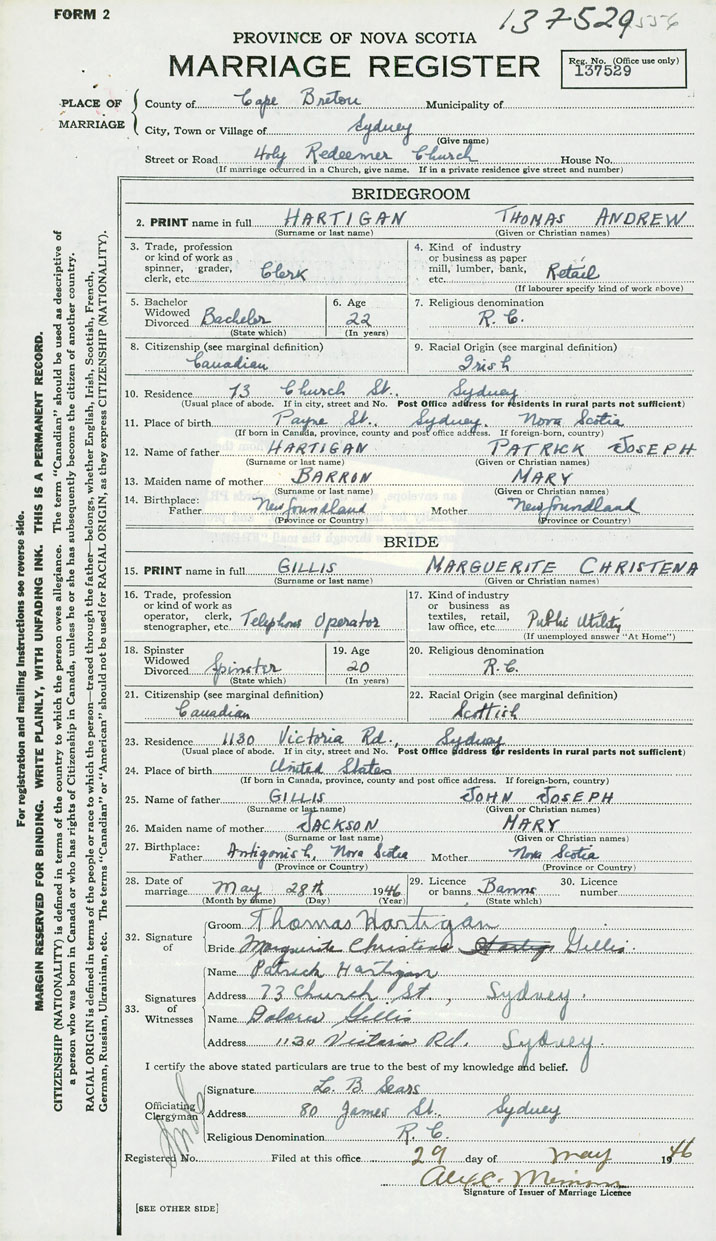 FORM 2
137529
PROVINCE OF NOVA SCOTIA
MARRIAGE REGISTER
Reg. No. (Office use only)
137529
PLACE OF MARRIAGE
County of Cape Breton Municipality of
City, Town or Village of Sydney
(Give name)
Street or Road Holy Redeemer Church House No.
(If marriage occurred in a Church, give name. If in a private residence give street and number)
BRIDEGROOM
2. PRINT name in full HARTIGAN THOMAS ANDREW
(Surname or last name) (Given or Christian names)
3. Trade, profession or kind of work as spinner, grader, clerk, etc. Clerk
4. Kind of industry or business as paper mill, lumber, bank, etc. Retail
(If labourer specify kind of work above)
5. Bachelor Widowed Divorced Bachelor
(State which)
6. Age 22
(In years)
7. Religious denomination
R. C.
8. Citizenship (see marginal definition)
Canadian
9. Racial Origin (see marginal definition)
Irish
10. Residence 73 Church St. Sydney
(Usual place of abode. If in city, street and No. Post Office address for residents in rural parts not sufficient)
11. Place of birth Payne St., Sydney. Nova Scotia
(If born in Canada, province, county and post office address. If foreign-born, country)
12. Name of father HARTIGAN PATRICK JOSEPH
(Surname or last name) (Given or Christian names)
13. Maiden name of mother BARRON MARY
(Surname or last name) (Given or Christian names)
14. Birthplace: Father Newfoundland Mother Newfoundland
(Province or Country) (Province or Country)
BRIDE
15. PRINT name in full GILLIS MARGUERITE CHRISTENA
(Surname or last name) (Given or Christian names)
16. Trade, profession or kind of work as operator, clerk, stenographer, etc. Telephone Operator
17. Kind of industry or business as textiles, retail, law office, etc. Public Utility
(If unemployed answer "At Home")
18. Spinster Widowed Divorced Spinster
(State which)
19. Age 20
(In years)
20. Religious denomination
R. C.
21. Citizenship (see marginal definition)
Canadian
22. Racial Origin (see marginal definition)
Scottish
23. Residence 1130 Victoria Rd., Sydney
(Usual place of abode. If in city, street and No. Post Office address for residents in rural parts not sufficient)
24. Place of birth United States
(If born in Canada, province, county and post office address. If foreign-born, country)
25. Name of father GILLIS JOHN JOSEPH
(Surname or last name) (Given or Christian names)
26. Maiden name of mother JACKSON MARY
(Surname or last name) (Given or Christian names)
27. Birthplace: Father Antigonish, Nova Scotia Mother Nova Scotia
(Province or Country) (Province or Country)
28. Date of marriage May 28th 1946
(Month by name) (Day) (Year)
29. Licence or banns Banns
(State which)
30. Licence number
32. Signature of
Groom Thomas Hartigan
Bride Marguerite Christena Gillis.
33. Signatures of Witnesses
Name Patrick Hartigan
Address 73 Church St., Sydney.
Name Dolores Gillis
Address 1130 Victoria Rd. Sydney.
I certify the above stated particulars are true to the best of my knowledge and belief.
Officiating Clergyman
Signature L. B. Sears
Address 80 James St. Sydney
Religious Denomination R. C.
Registered No. Filed at this office 29 day of May 1946
Signature of Issuer of Marriage Licence
[SEE OTHER SIDE]
For registration and mailing instructions see reverse side.
MARGIN RESERVED FOR BINDING. WRITE PLAINLY, WITH UNFADING INK. THIS IS A PERMANENT RECORD.
CITIZENSHIP (NATIONALITY) is defined in terms of the country to which the person owes allegiance. The term "Canadian" should be used as descriptive of
a person who was born in Canada or who has rights of Citizenship in Canada, unless he or she has subsequently become the citizen of another country.
RACIAL ORIGIN is defined in terms of the people or race to which the person—traced through the father—belongs, whether English, Irish, Scottish, French,
German, Russian, Ukrainian, etc. The terms "Canadian" or "American" should not be used for RACIAL ORIGIN, as they express CITIZENSHIP (NATIONALITY).